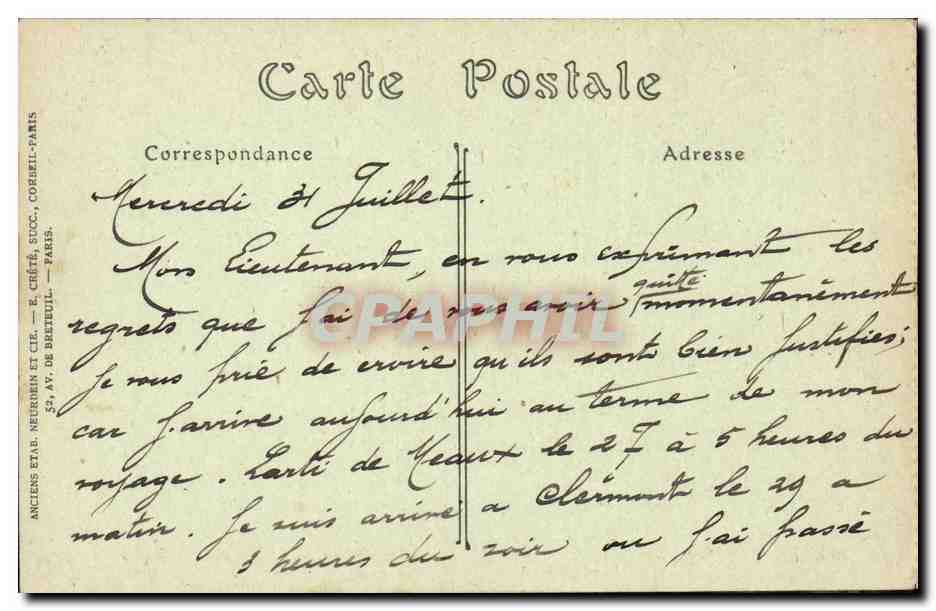 Carte Postale
Correspondance
Adresse
Mercredi 31 Juillet.
Mon Lieutenant, en vous exprimant les
regrets que j'ai de vous avoir quitté momentanément
je vous prie de croire qu'ils sont bien justifiés;
car j'arrive aujourd'hui au terme de mon
voyage. Parti de Meaux le 27 à 5 heures du
matin. Je suis arrivé a Clermont le 29 a
3 heures du soir ou j'ai passé
ANCIENS ETAB. NEURDEIN ET CIE. — E. CRÉTÉ, SUCC., CORBEIL-PARIS
52, AV. DE BRETEUIL. — PARIS.
CPAPHIL